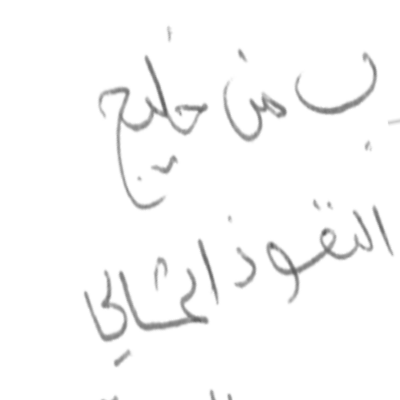 ب من خليج
النفوذ الشمالي